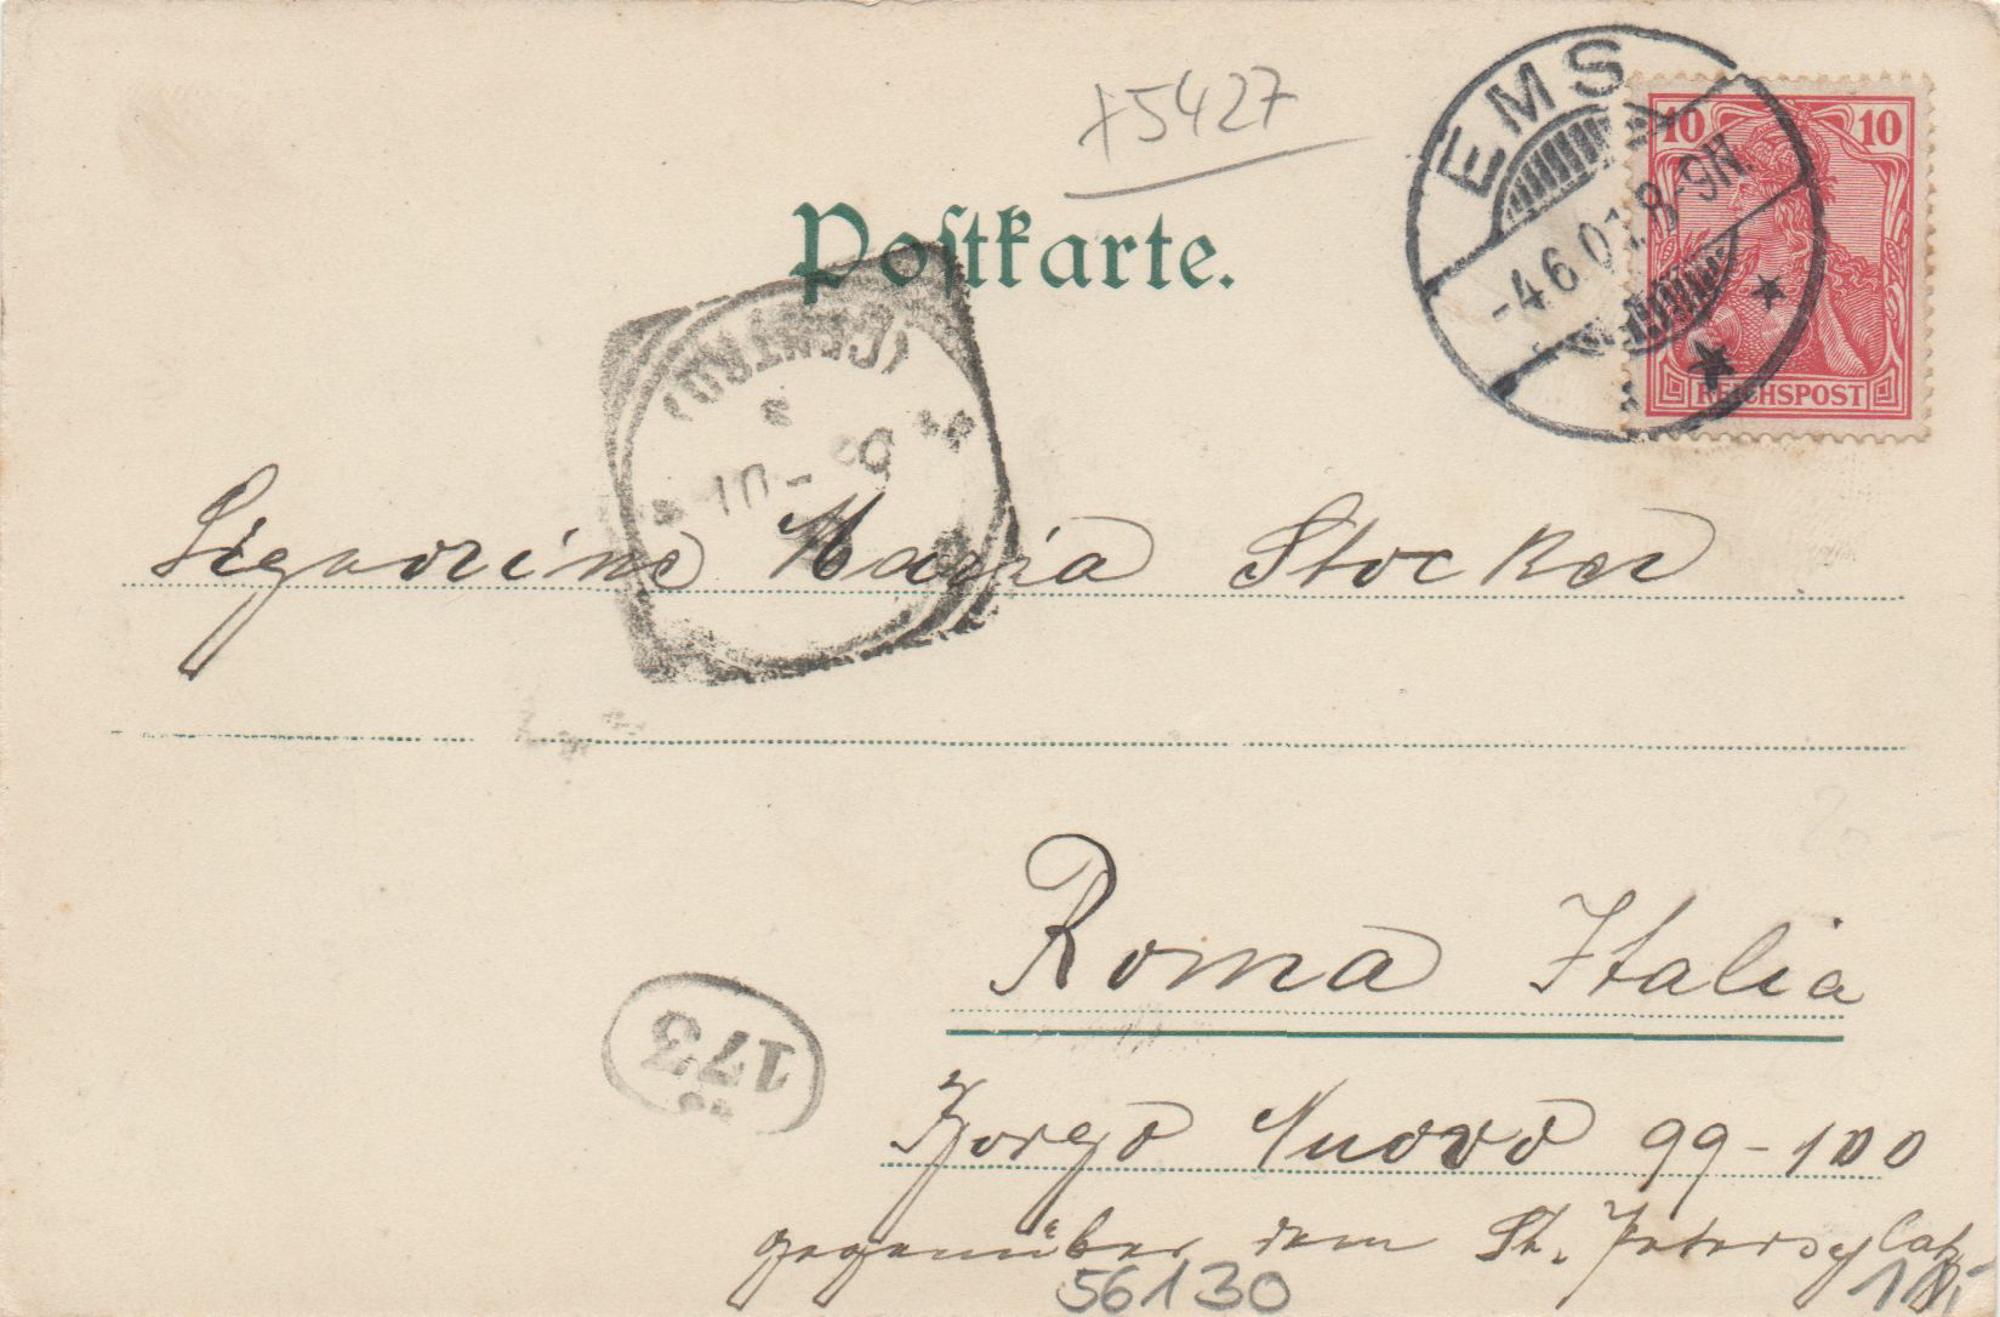 +5427
EMS
-4.6.01.8-9N.
10 10
REICHSPOST
Postkarte.
(CENTRO)
Signorina Maria Stocker
Roma Italia
173
Borgo Nuovo 99-100
gegenüber dem St. Petersplatz
56130